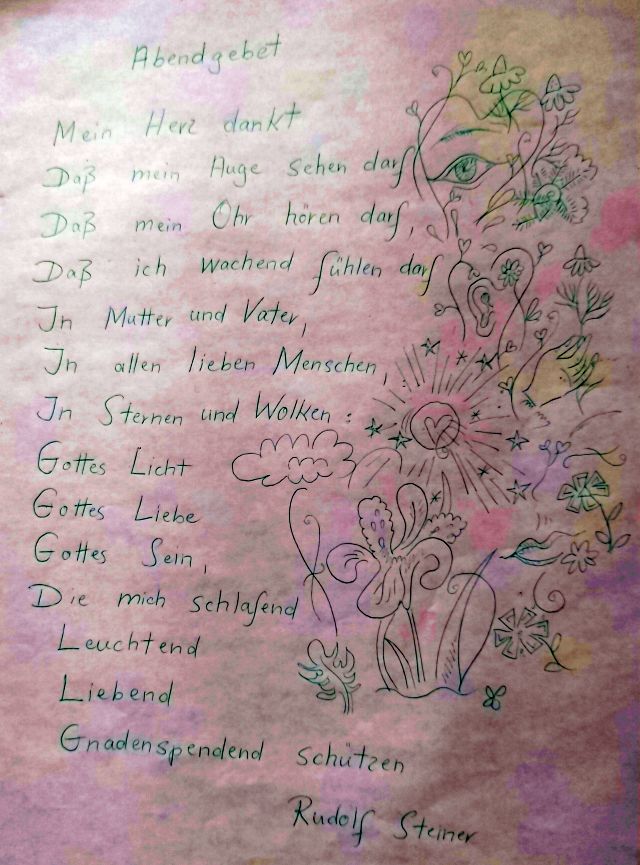 Abendgebet
Mein Herz dankt
Daß mein Auge sehen darf
Daß mein Ohr hören darf,
Daß ich wachend fühlen darf
In Mutter und Vater,
In allen lieben Menschen,
In Sternen und Wolken:
Gottes Licht
Gottes Liebe
Gottes Sein,
Die mich schlafend
Leuchtend
Liebend
Gnadenspendend schützen
Rudolf Steiner